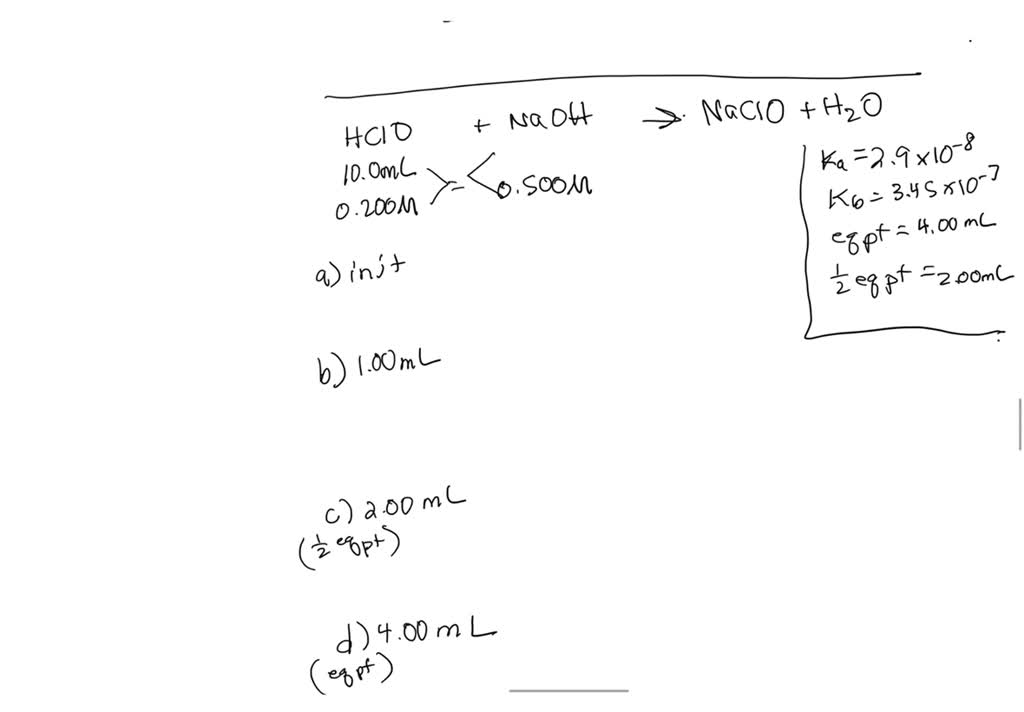 HClO + NaOH → NaClO + H₂O
10.0mL
0.200M
0.500M
Ka = 2.9 x 10⁻⁸
Kb = 3.45 x 10⁻⁷
eq pt = 4.00 mL
½ eq pt = 2.00mL
a) init
b) 1.00mL
c) 2.00 mL
(½ eq pt)
d) 4.00 mL
(eq pt)